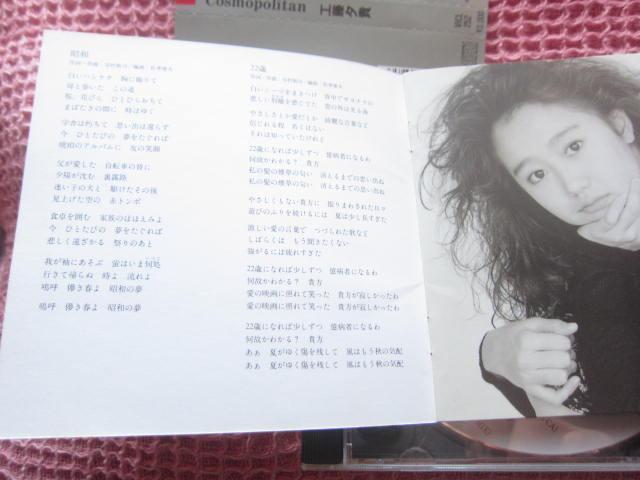 Cosmopolitan 工藤夕貴
昭和
作詞・作曲／谷村新司・編曲／佐孝康夫
白いハンケチ 胸に飾りて
母と歩いた この道
桜、花びら ひとひらおちて
まばたきの間に 時はゆく
学舎は朽ちて 思い出は還らず
今 ひとたびの 夢をたぐれば
琥珀のアルバムに 友の笑顔
父が愛した 自転車の背に
夕陽が沈む 裏露路
迷い子の犬と 駆けたその後
見上げた空の 赤トンボ
食卓を囲む 家族のほほえみよ
今 ひとたびの 夢をたぐれば
悲しく遠ざかる 祭りのあと
我が袖にあそぶ 蛍はいま何処
行きて帰らぬ 時よ 流れよ
嗚呼 儚き春よ 昭和の夢
嗚呼 儚き春よ 昭和の夢
22歳
作詞・作曲／谷村新司・編曲／佐孝康夫
白いシーツをまきつけ 背中でサヨナラの
悲しい別離を感じてた 窓の外は光る海
やさしさとか愛だとか 綺麗な言葉など
信じれる程 若くはない
それは知っていたけれど
22歳になれば少しずつ 臆病者になるわ
何故かわかる? 貴方
私の髪の煙草の匂い 消えるまでの思い出ね
私の髪の煙草の匂い 消えるまでの思い出ね
やさしくもない貴方に 振りまわされた日々
遊びのふりを続けるには 夏は少し長すぎた
激しい愛の言葉で つづられた歌など
しばらくは もう聞きたくない
強がるには疲れすぎた
22歳になれば少しずつ 臆病者になるわ
何故かわかる? 貴方
愛の映画に照れて笑った 貴方が寂しかったわ
愛の映画に照れて笑った 貴方が寂しかったわ
22歳になれば少しずつ 臆病者になるわ
何故かわかる? 貴方
あぁ 夏がゆく傷を残して 風はもう秋の気配
あぁ 夏がゆく傷を残して 風はもう秋の気配